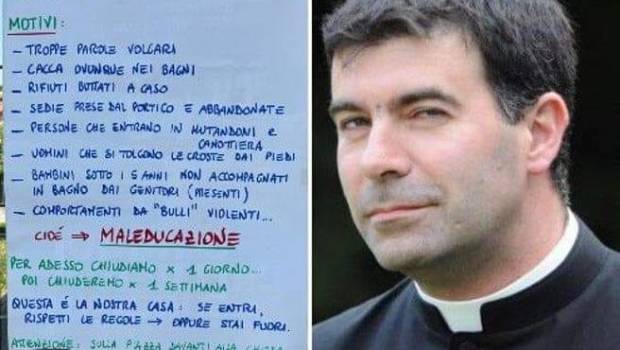 MOTIVI:
- TROPPE PAROLE VOLGARI
- CACCA OVUNQUE NEI BAGNI
- RIFIUTI BUTTATI A CASO
- SEDIE PRESE DAL PORTICO E ABBANDONATE
- PERSONE CHE ENTRANO IN MUTANDONI E
CANOTTIERA
- UOMINI CHE SI TOLGONO LE CROSTE DAI PIEDI
- BAMBINI SOTTO I 5 ANNI NON ACCOMPAGNATI
IN BAGNO DAI GENITORI (PRESENTI)
- COMPORTAMENTI DA "BULLI" VIOLENTI...
CIOÉ → MALEDUCAZIONE
PER ADESSO CHIUDIAMO x 1 GIORNO...
POI CHIUDEREMO x 1 SETTIMANA
QUESTA É LA NOSTRA CASA: SE ENTRI,
RISPETTI LE REGOLE → OPPURE STAI FUORI.
ATTENZIONE: SULLA PIAZZA DAVANTI ALLA CHIESA